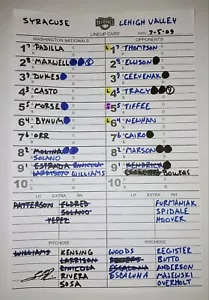 SYRACUSE LEHIGH VALLEY
LINEUP CARD 7-5-09
WASHINGTON NATIONALS OPPONENTS
1 PADILLA 1 THOMPSON
2 MAXWELL 2 ELLISON
3 DUKES 3 CERVENAK
4 CASTO 4 TRACY
5 MORSE 5 TIFFEE
6 BYNUM 6 NEWHAN
7 ORR 7 CAIRO
8 MOLINA 8 MARSON
SOLANO
9 WILLIAMS 9 KENDRICK
10 10
LH EXTRA RH LH EXTRA RH
PATTERSON ELDRED FURMANIAK
SOLANO SPIDALE
YEPEZ HOOVER
PITCHERS PITCHERS
WILLIAMS KENSING WOODS REGISTER
BUTTO
ESCALONA ANDERSON
RIVERA ESCALONA MAJEWSKI
SOSA OVERHOLT